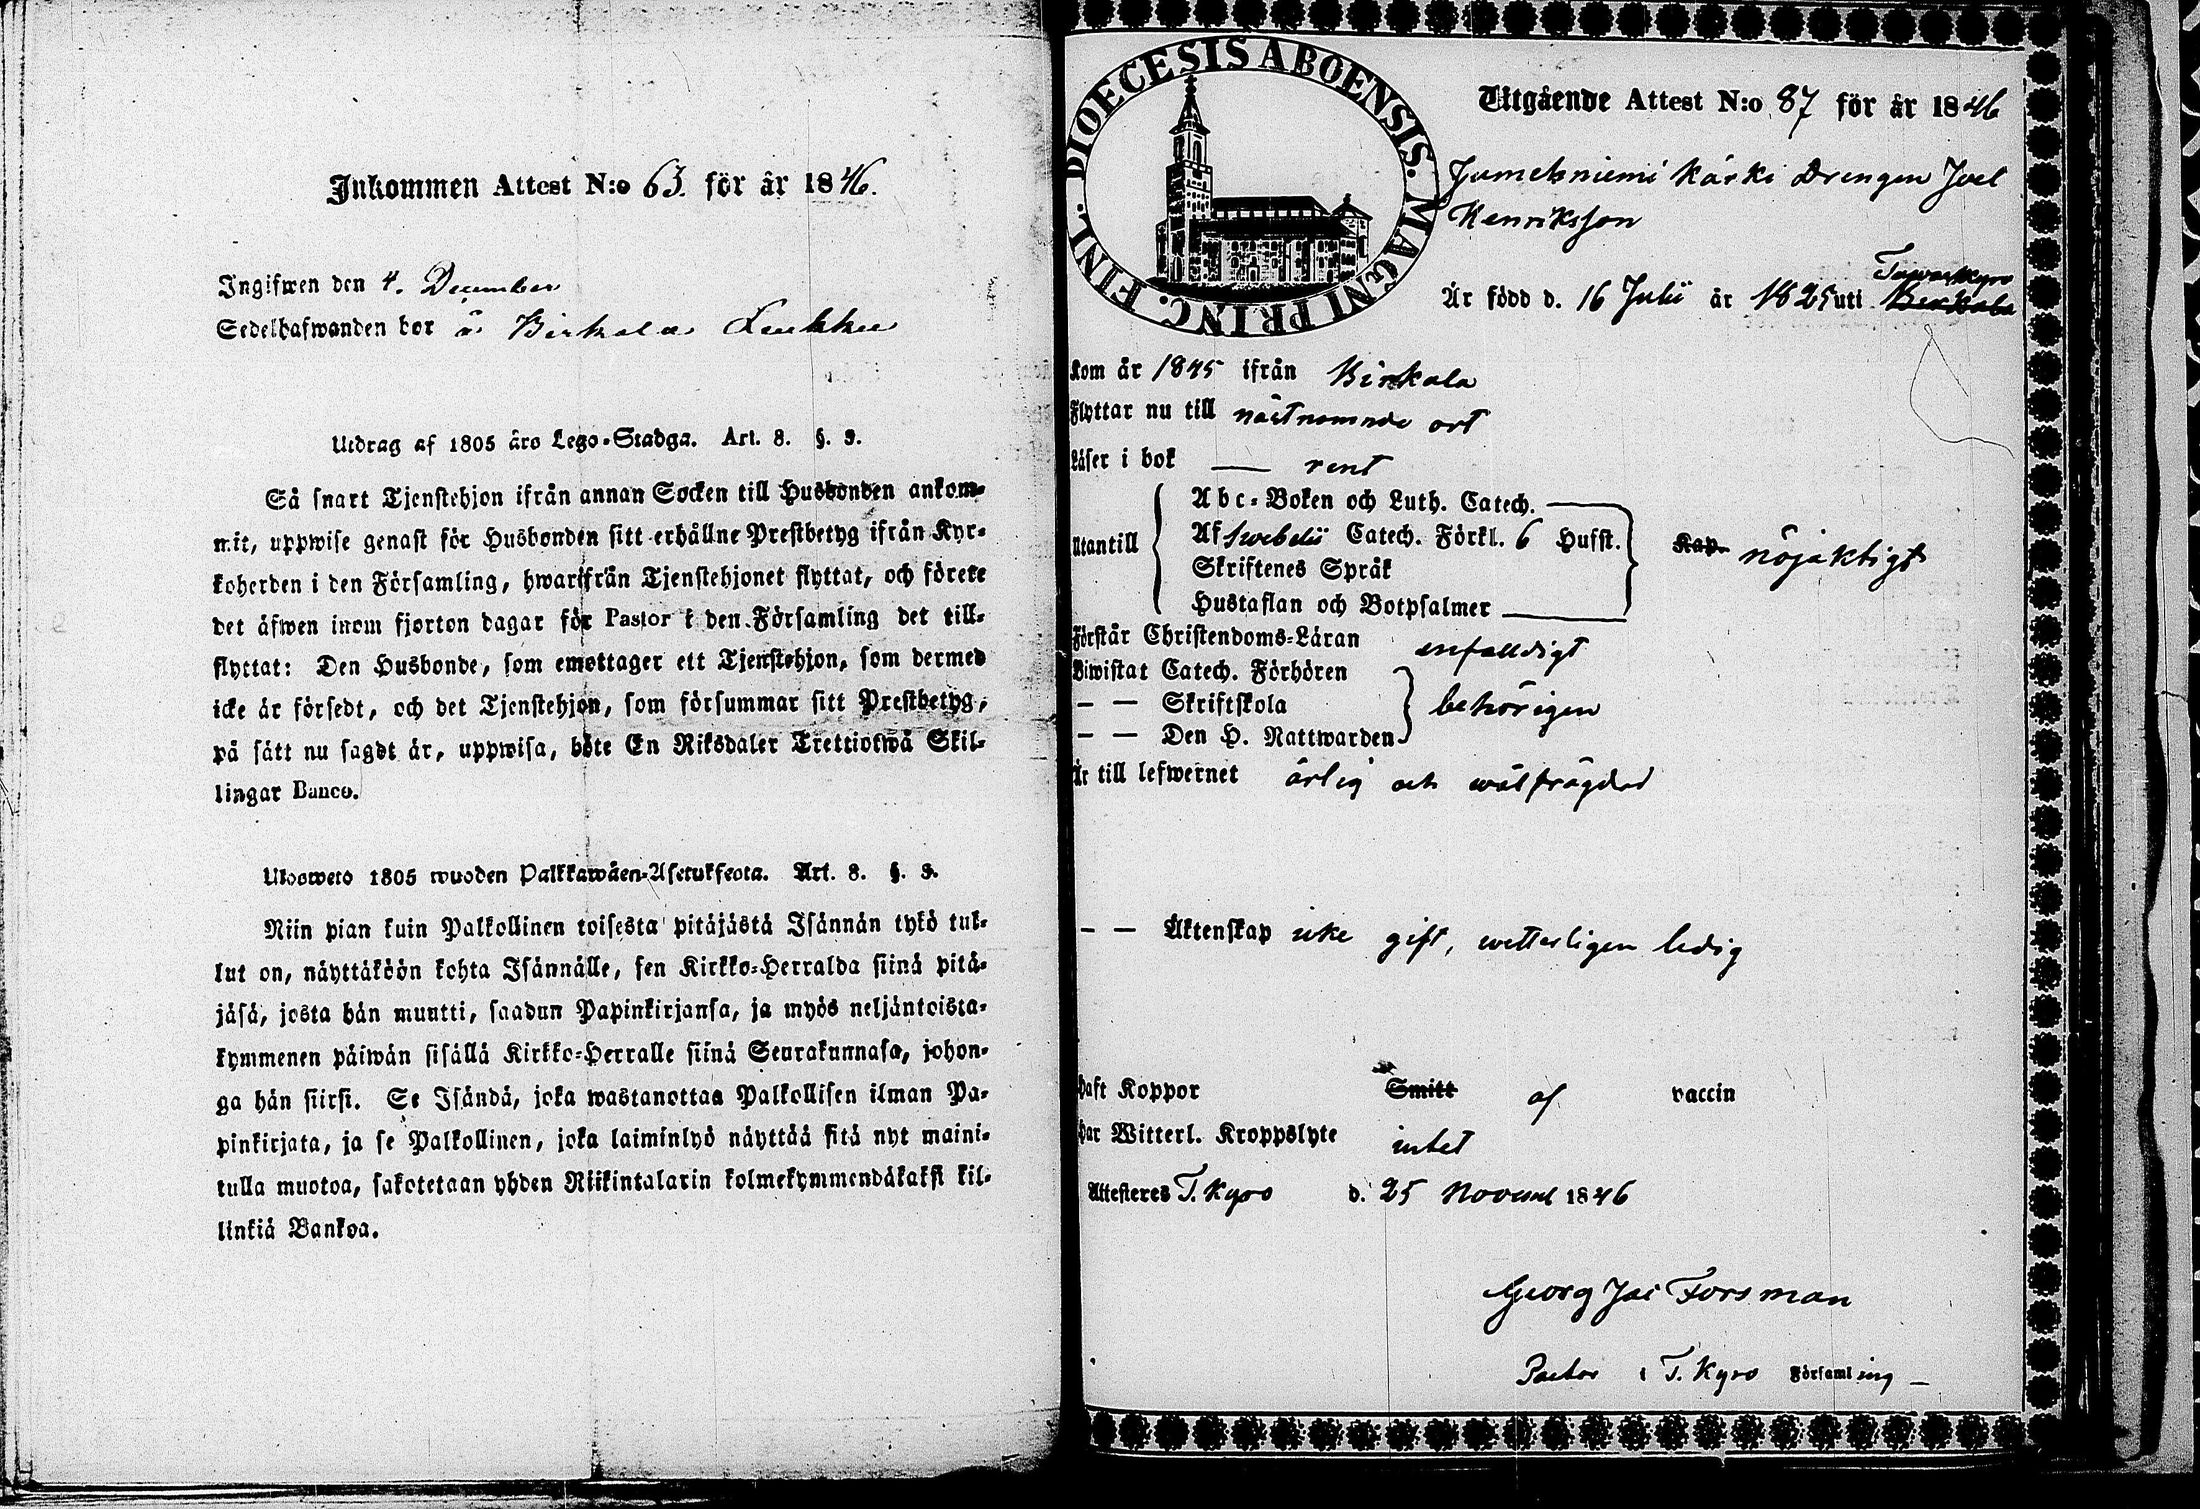 Inkommen Attest N:o 63. för år 1846.
Ingifwen den 4. December
Sedelhafwanden bor å Birkala Lukku
Utdrag af 1805 års Lego-Stadga. Art. 8. §. 9.
Så snart Tjenstehjon ifrån annan Socken till Husbonden ankom-
mit, uppwise genast för Husbonden sitt erhållne Prestbetyg ifrån Kyr-
koherden i den Församling, hwarifrån Tjenstehjonet flyttat, och förete
det äfwen inom fjorton dagar för Pastor i den Församling det till-
flyttat: Den Husbonde, som emottager ett Tjenstehjon, som dermed
icke är försedt, och det Tjenstehjon, som försummar sitt Prestbetyg,
på sätt nu sagdt är, uppwisa, böte En Riksdaler Trettiotwå Skil-
lingar Banco.
Ulosweto 1805 wuoden Palkkawäen-Asetuksesta. Art. 8. §. 9.
Niin pian kuin Palkollinen toisesta pitäjästä Isännän tykö tul-
lut on, näyttäköön kohta Isännälle, sen Kirkko-Herralda siinä pitä-
jäsä, josta hän muutti, saadun Papinkirjansa, ja myös neljäntoista-
kymmenen päiwän sisällä Kirkko-Herralle siinä Seurakunnasa, johon-
ga hän siirsi. Se Isändä, joka wastanottaa Palkollisen ilman Pa-
pinkirjata, ja se Palkollinen, joka laiminlyö näyttää sitä nyt maini-
tulla muotoa, sakotetaan yhden Riikintalarin kolmekymmendäkaksi kil-
linkiä Bankoa.
FINL. DIOECESIS ABOENSIS. MAGNI PRINC.
Utgående Attest N:o 87 för år 1846
Jumesniemi Kärki Drengen Joel
Henriksson
Tawastkyro
Är född d. 16 Julii år 1825 uti Birkala
Kom år 1845 ifrån Birkala
Flyttar nu till nästnomnde ort
Läser i bok — rent
Abc-Boken och Luth. Catech.
Utantill Af Swebelii Catech. Förkl. 6 Hufst. Kap. nöjaktigt
Skriftenes Språk
Hustaflan och Botpsalmer
Förstår Christendoms-Läran enfalldigt
Biwistat Catech. Förhören
— — Skriftskola behörigen
— — Den H. Nattwarden
Är till lefwernet ärlig och wälfrägdad
— — Äktenskap icke gift, wetterligen ledig
Haft Koppor Smitt af vaccin
Har Witterl. Kroppslyte intet
Attesteres T. Kyro d. 25 Novemb 1846
Georg Jac Forsman
Pastor i T. Kyro Församling —